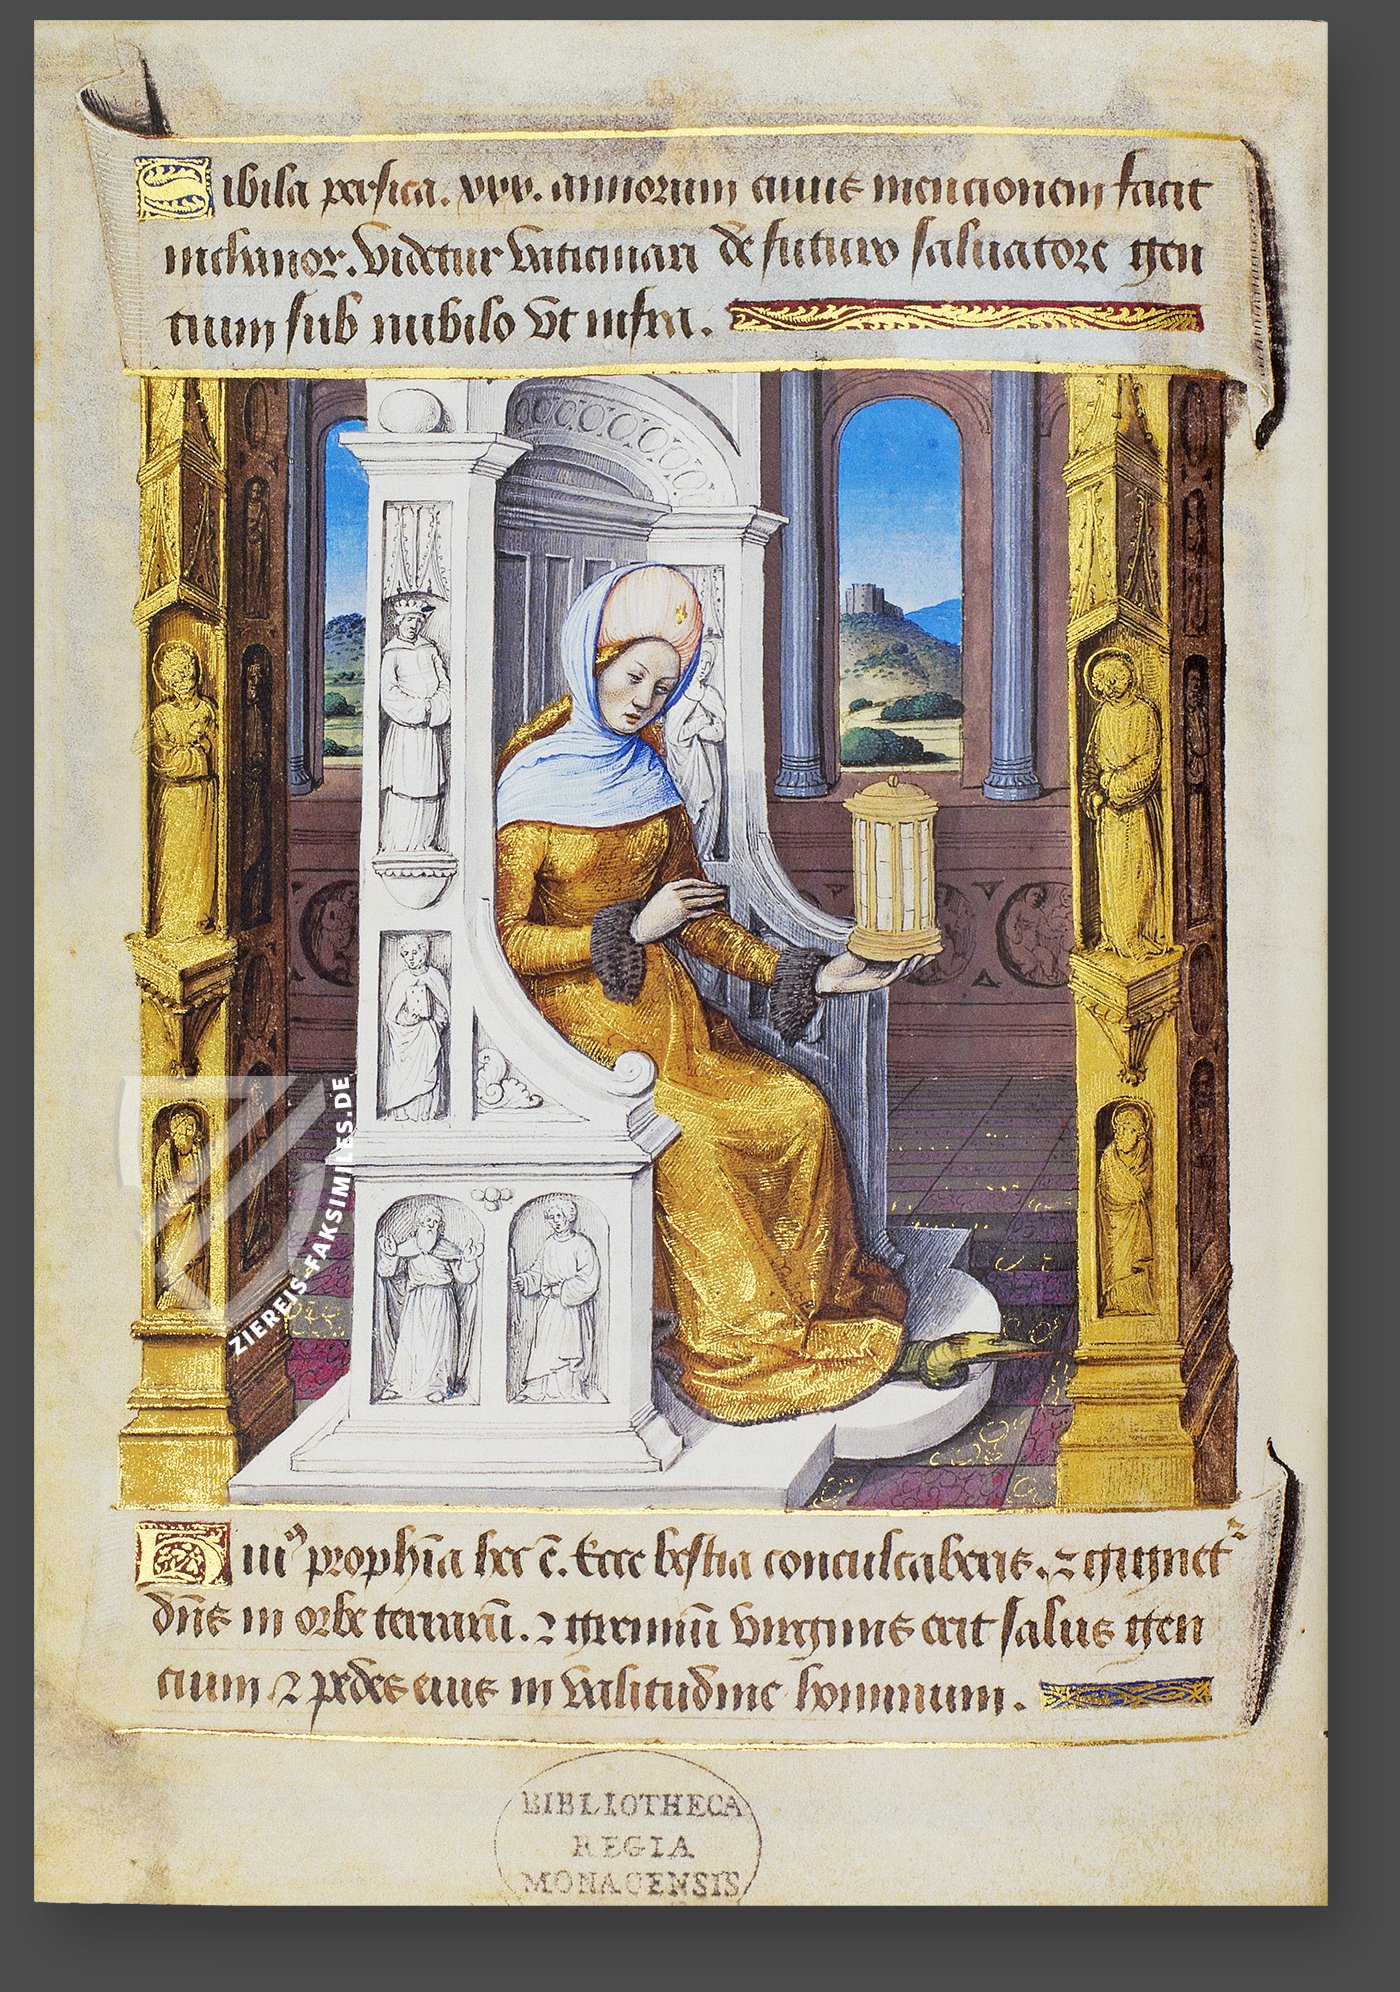 Sibila persica. xxx. annorum cuius mencionem facit
nichanor. Videtur vaticinari de futuro saluatore gen
tium sub nubilo vt infra.
Huiꝰ prophīa hec ē. Ecce bestia conculcaberis. ⁊ gignetᷣ
dñs in orbe terrarū. ⁊ gremiū virginis erit salus gen
cium ⁊ pedes eius in valitudine hominum.
ZIEREIS-FAKSIMILES.DE
BIBLIOTHECA
REGIA
MONACENSIS